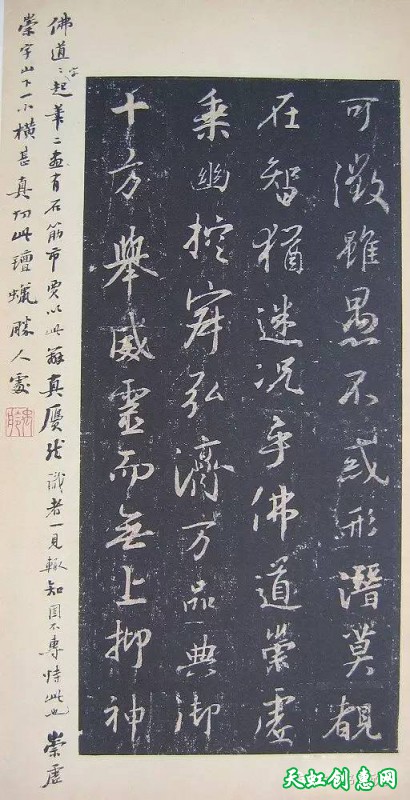 可徵雖愚不惑形潛莫覩
在智猶迷况乎佛道崇虛
乘幽控寂弘濟万品典御
十方舉威靈而無上抑神
佛道之字起筆二畫有石筋市賈以此辨真贋然識者一見輙知固不專恃此也 崇虛
崇字山下一小横甚真切此氊蠟勝人處
天虹创惠网